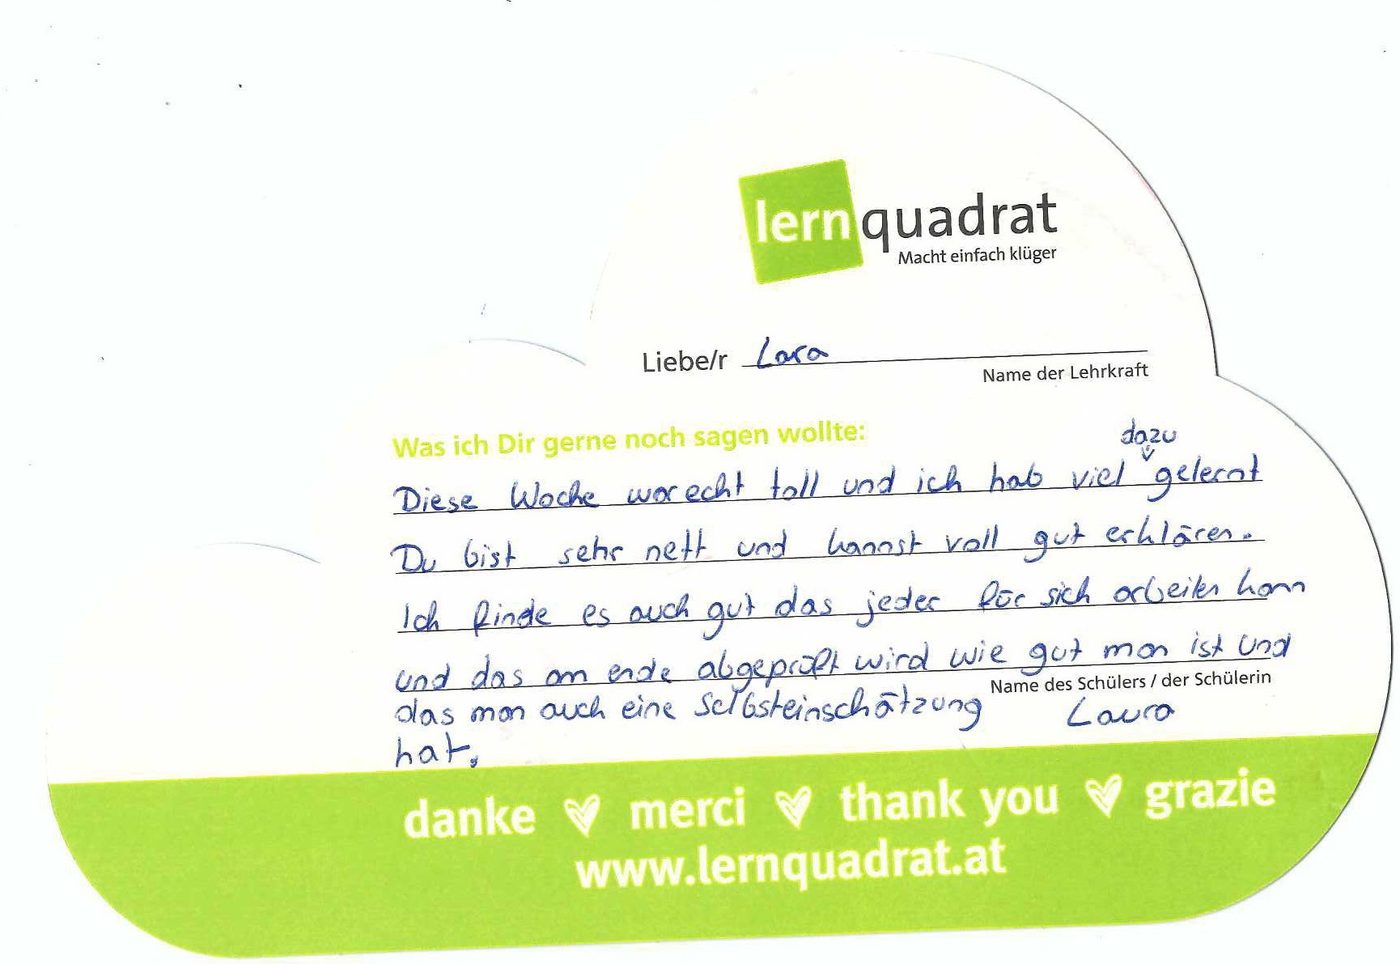 lernquadrat
Macht einfach klüger
Liebe/r Lara
Name der Lehrkraft
Was ich Dir gerne noch sagen wollte:
dazu
Diese Woche war echt toll und ich hab viel gelernt
Du bist sehr nett und kannst voll gut erklären.
Ich finde es auch gut das jeder für sich arbeiten kann
und das am ende abgeprüft wird wie gut man ist und
Name des Schülers / der Schülerin
das man auch eine Selbsteinschätzung Laura
hat.
danke merci thank you grazie
www.lernquadrat.at